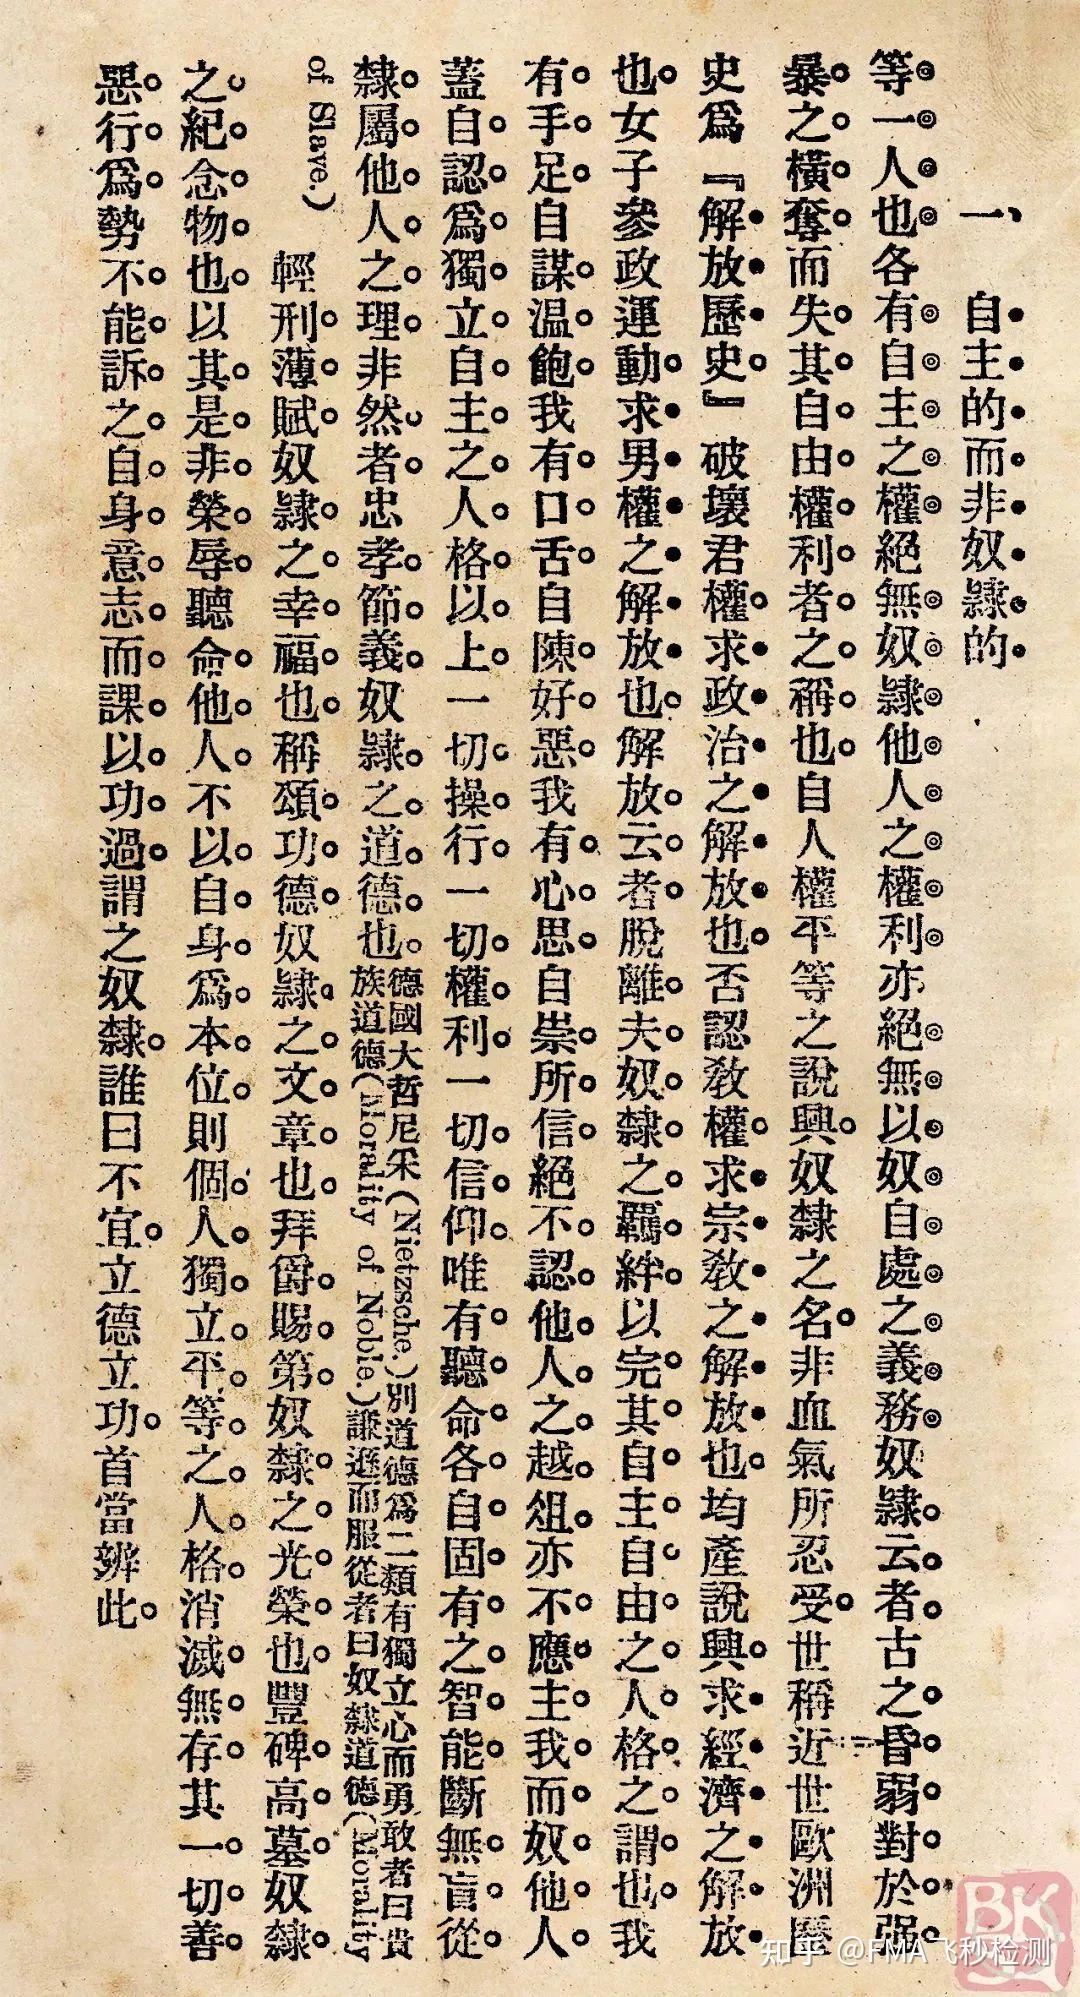 一、自主的而非奴隸的
等一人也各有自主之權絕無奴隸他人之權利亦絕無以奴自處之義務奴隸云者古之昏弱對於强
暴之橫奪而失其自由權利者之稱也自人權平等之說興奴隸之名非血氣所忍受世稱近世歐洲歷
史爲『解放歷史』破壞君權求政治之解放也否認敎權求宗敎之解放也均產說興求經濟之解放
也女子參政運動求男權之解放也解放云者脫離夫奴隸之羈絆以完其自主自由之人格之謂也我
有手足自謀温飽我有口舌自陳好惡我有心思自崇所信絕不認他人之越俎亦不應主我而奴他人
蓋自認爲獨立自主之人格以上一切操行一切權利一切信仰唯有聽命各自固有之智能斷無盲從
隸屬他人之理非然者忠孝節義奴隸之道德也
德國大哲尼采(Nietzsche.)別道德爲二類有獨立心而勇敢者曰貴
族道德(Morality of Noble.)謙遜而服從者曰奴隸道德(Morality
of Slave.)輕刑薄賦奴隸之幸福也稱頌功德奴隸之文章也拜爵賜第奴隸之光榮也豐碑高墓奴隸
之紀念物也以其是非榮辱聽命他人不以自身爲本位則個人獨立平等之人格消滅無存其一切善
惡行爲勢不能訴之自身意志而課以功過謂之奴隸誰曰不宜立德立功首當辨此。
BK
知乎 @FMA飞秒检测